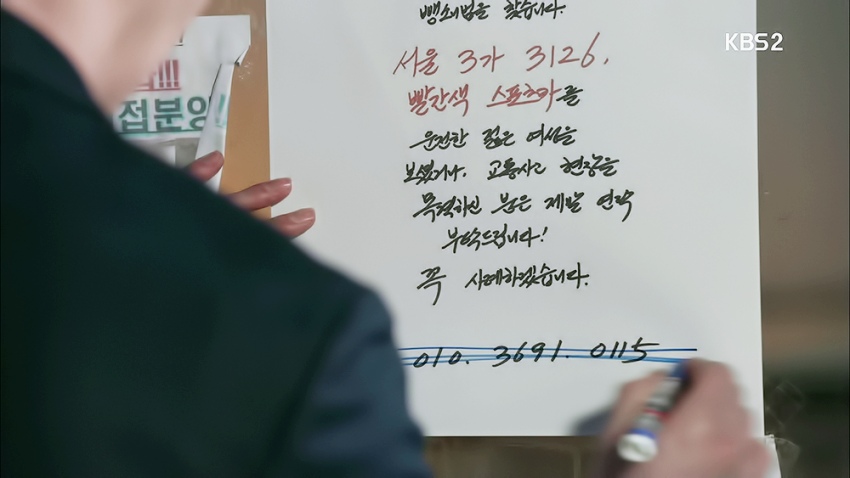 뺑소니범을 찾습니다.
서울 3가 3126.
빨간색 스포츠카를
운전한 젊은 여성을
보셨거나, 교통사고 현장을
목격하신 분은 제발 연락
부탁드립니다!
꼭 사례하겠습니다.
010. 3691. 0115
KBS2
!!!
접분양!!